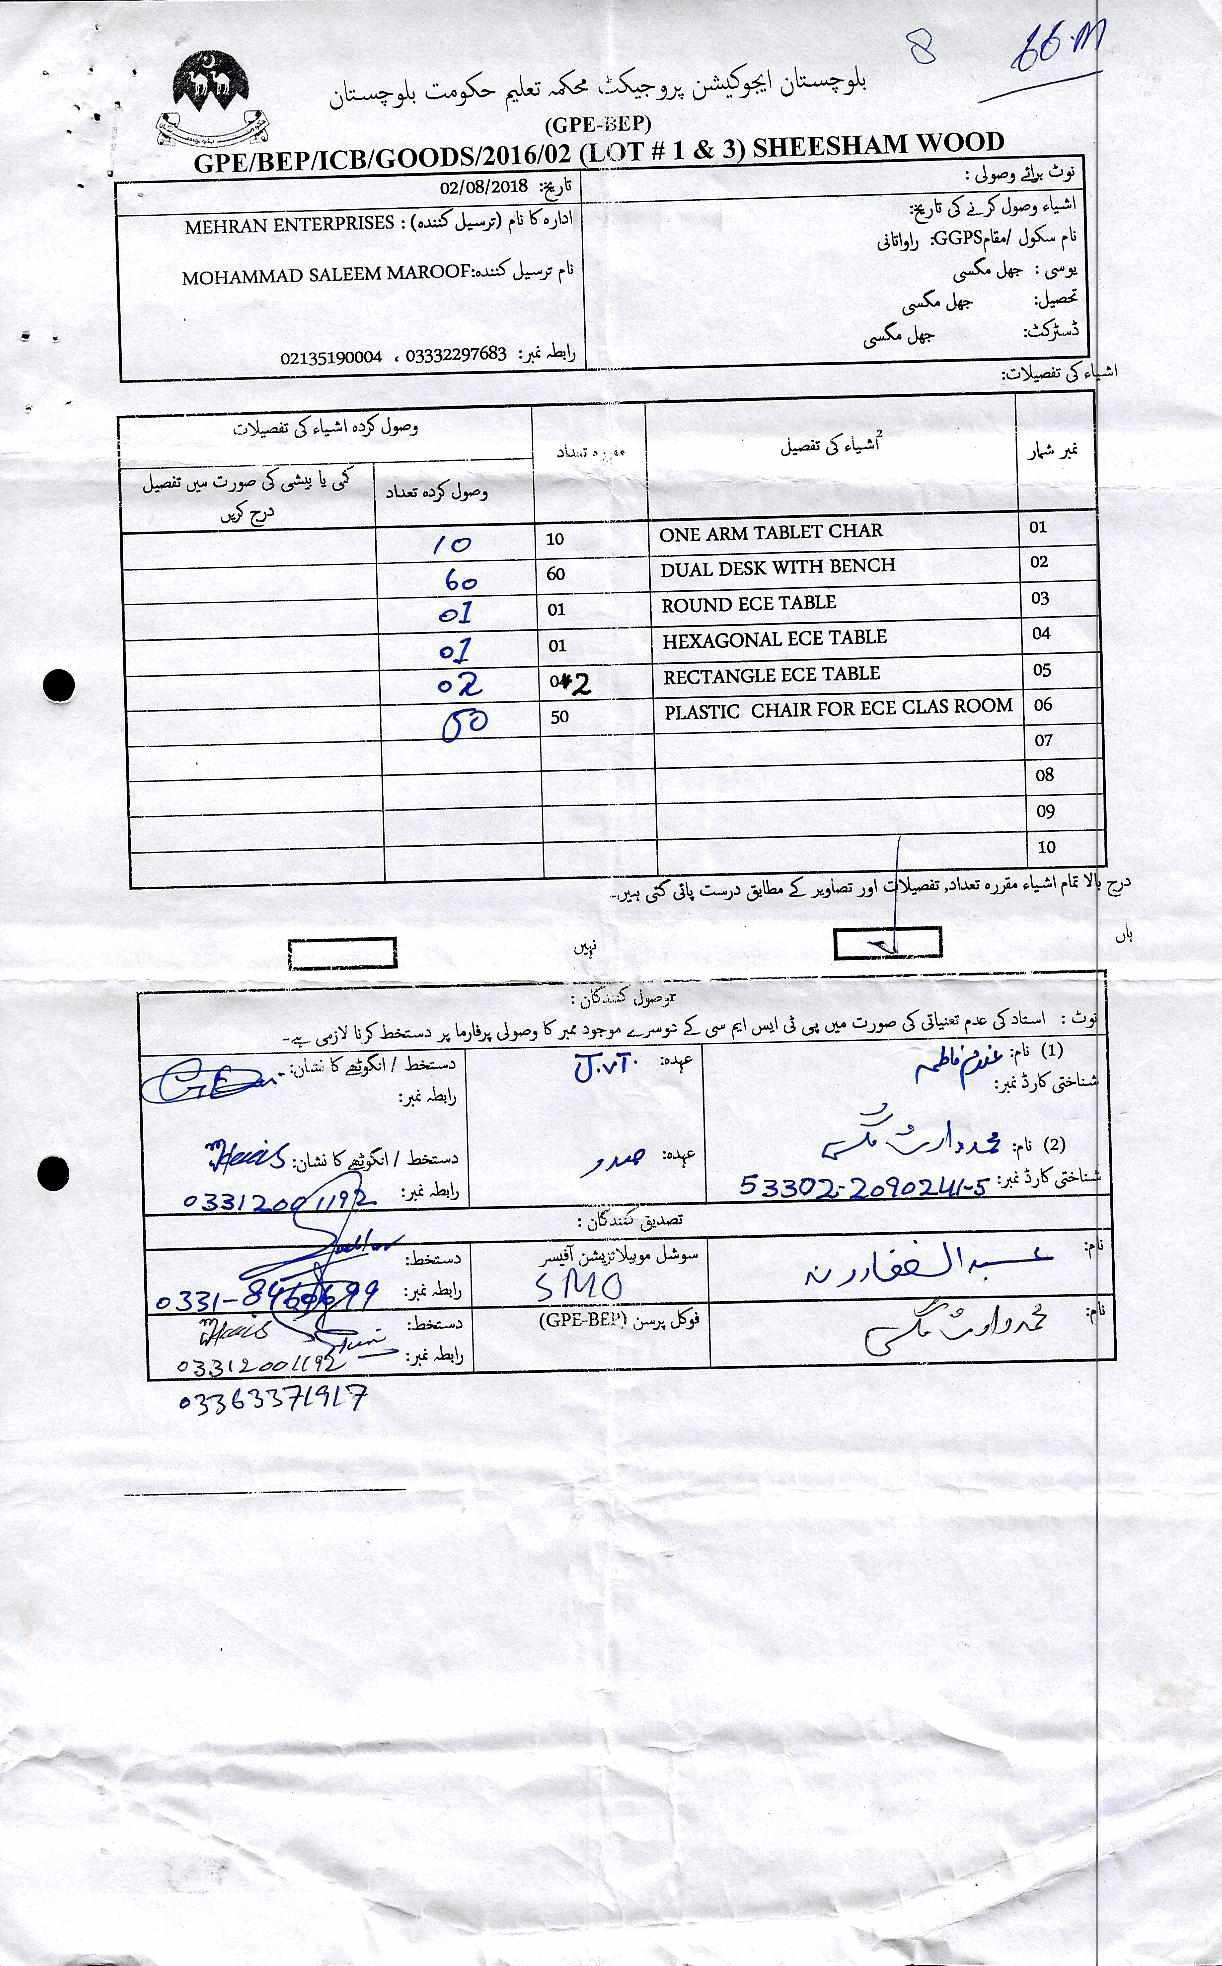 8 66.M
بلوچستان ایجوکیشن پروجیکٹ محکمہ تعلیم حکومت بلوچستان
(GPE-BEP)
GPE/BEP/ICB/GOODS/2016/02 (LOT # 1 & 3) SHEESHAM WOOD
نوٹ برائے وصولی :
تاریخ: 02/08/2018
اشیاء وصول کرنے کی تاریخ:
ادارہ کا نام (ترسیل کنندہ) : MEHRAN ENTERPRISES
نام سکول /مقام GGPS: راواتانی
یوسی : جھل مگسی
نام ترسیل کنندہ: MOHAMMAD SALEEM MAROOF
تحصیل: جھل مگسی
ڈسٹرکٹ: جھل مگسی
رابطہ نمبر: 03332297683 ، 02135190004
اشیاء کی تفصیلات:
نمبر شمار اشیاء کی تفصیل2 مقررہ تعداد وصول کردہ اشیاء کی تفصیلات
وصول کردہ تعداد کمی یا بیشی کی صورت میں تفصیل درج کریں
01 ONE ARM TABLET CHAR 10 10
02 DUAL DESK WITH BENCH 60 60
03 ROUND ECE TABLE 01 01
04 HEXAGONAL ECE TABLE 01 01
05 RECTANGLE ECE TABLE 02 02
06 PLASTIC CHAIR FOR ECE CLAS ROOM 50 50
07
08
09
10
درج بالا تمام اشیاء مقررہ تعداد, تفصیلات اور تصاویر کے مطابق درست پائی گئی ہیں۔
ہاں نہیں
وصول کنندگان :
نوٹ : استاد کی عدم تعیناتی کی صورت میں پی ٹی ایس ایم سی کے دوسرے موجود ممبر کا وصولی پرفارما پر دستخط کرنا لازمی ہے۔
(1) نام: فاطمہ عہدہ: J.V.T. دستخط / انگوٹھے کا نشان:
شناختی کارڈ نمبر: رابطہ نمبر:
(2) نام: محمد وارث مگسی عہدہ: صدر دستخط / انگوٹھے کا نشان:
شناختی کارڈ نمبر: 53302-2090241-5 رابطہ نمبر: 03312001192
تصدیق کنندگان :
نام: عبدالغفار سوشل موبیلائزیشن آفیسر دستخط:
SMO رابطہ نمبر:
نام: محمد وارث مگسی فوکل پرسن (GPE-BEP) دستخط:
رابطہ نمبر: 03312001192
03363371917